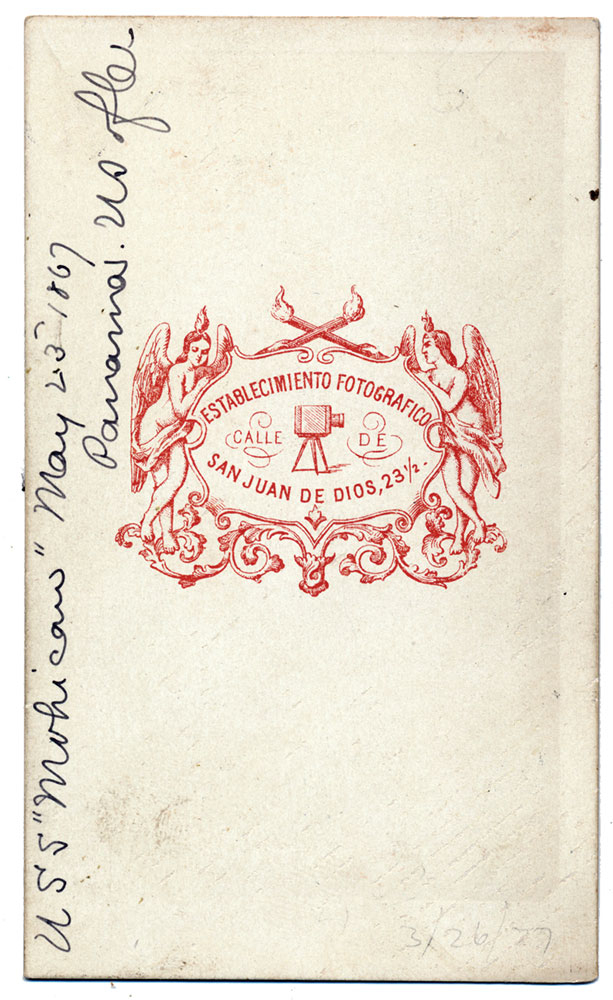 USS "Mohican" May 23 1867
Panama. US ofler
ESTABLECIMIENTO FOTOGRAFICO
CALLE DE
SAN JUAN DE DIOS, 23½.
3/26/77